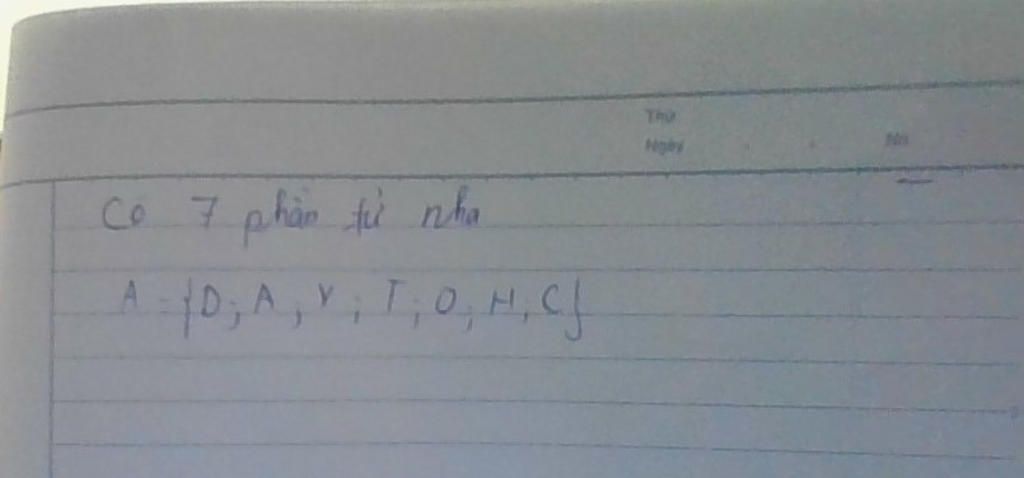 Thứ
Ngày
No
Có 7 phần tử nha
A = {D; A, Y; T; O, H, C}